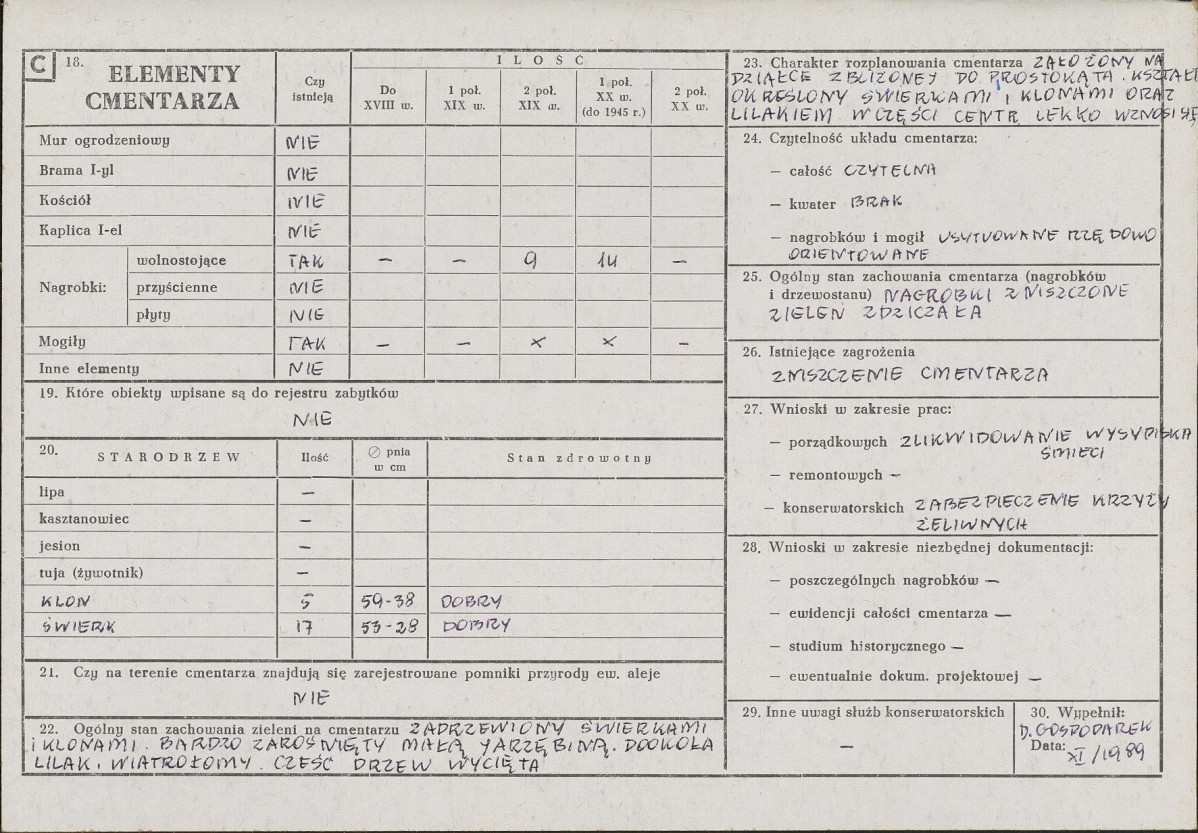 C 18. ELEMENTY CMENTARZA
Czy istnieją
ILOŚĆ
Do XVIII w.
1 poł. XIX w.
2 poł. XIX w.
1 poł. XX w. (do 1945 r.)
2 poł. XX w.
Mur ogrodzeniowy NIE
Brama I-yl NIE
Kościół NIE
Kaplica I-el NIE
Nagrobki: wolnostojące TAK – – 9 14 –
przyścienne NIE
płyty NIE
Mogiły TAK – – x x –
Inne elementy NIE
19. Które obiekty wpisane są do rejestru zabytków
NIE
20. STARODRZEW Ilość ∅ pnia w cm Stan zdrowotny
lipa –
kasztanowiec –
jesion –
tuja (żywotnik) –
KLON 5 59-38 DOBRY
ŚWIERK 17 53-28 DOBRY
21. Czy na terenie cmentarza znajdują się zarejestrowane pomniki przyrody ew. aleje
NIE
22. Ogólny stan zachowania zieleni na cmentarzu ZADRZEWIONY ŚWIERKAMI
i KLONAMI. BARDZO ZAROŚNIĘTY MAŁĄ JARZĘBINĄ. DOOKOŁA
LILAK. WIATROŁOMY. CZEŚĆ DRZEW WYCIĘTA
23. Charakter rozplanowania cmentarza ZAŁOŻONY NA
DZIAŁCE ZBLIŻONEJ DO PROSTOKĄTA. KSZTAŁT
OKREŚLONY ŚWIERKAMI i KLONAMI ORAZ
LILAKIEM W CZĘŚCI CENTR LEKKO WZNOSI SIĘ
24. Czytelność układu cmentarza:
– całość CZYTELNA
– kwater BRAK
– nagrobków i mogił USYTUOWANE RZĘDOWO
ORIENTOWANE
25. Ogólny stan zachowania cmentarza (nagrobków
i drzewostanu) NAGROBKI ZNISZCZONE
ZIELEŃ ZDZICZAŁA
26. Istniejące zagrożenia
ZNISZCZENIE CMENTARZA
27. Wnioski w zakresie prac:
– porządkowych ZLIKWIDOWANIE WYSYPISKA
ŚMIECI
– remontowych –
– konserwatorskich ZABEZPIECZENIE KRZYŻY
ŻELIWNYCH
28. Wnioski w zakresie niezbędnej dokumentacji:
– poszczególnych nagrobków –
– ewidencji całości cmentarza –
– studium historycznego –
– ewentualnie dokum. projektowej –
29. Inne uwagi służb konserwatorskich
–
30. Wypełnił:
D. GOSPODAREK
Data: XI/1989